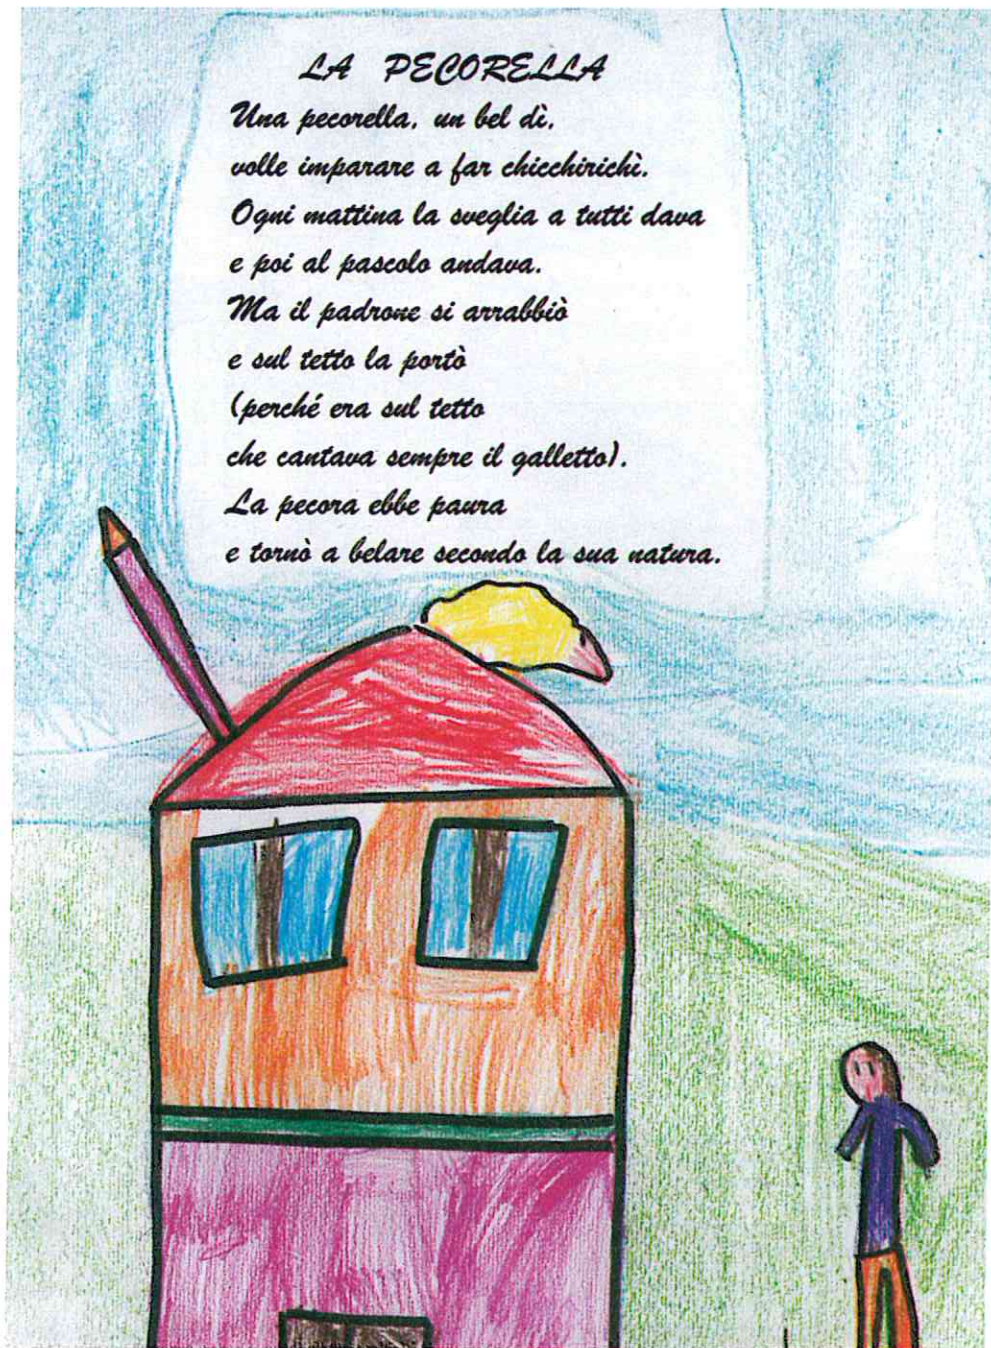 LA PECORELLA
Una pecorella, un bel dì,
volle imparare a far chicchirichì.
Ogni mattina la sveglia a tutti dava
e poi al pascolo andava.
Ma il padrone si arrabbiò
e sul tetto la portò
(perché era sul tetto
che cantava sempre il galletto).
La pecora ebbe paura
e tornò a belare secondo la sua natura.